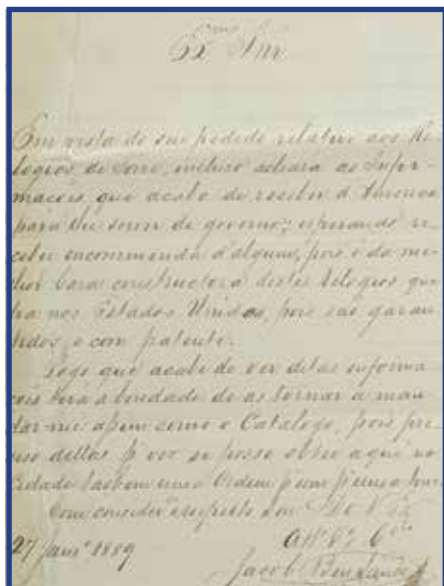 Exmo Snr
Em vista do seu pedido relativo aos Re-
logios de Torre, incluso achará as infor-
macois que acabo de receber d'America
para lhe serem de governo; esperando re-
ceber encommenda d'algum, pois é da me-
lhor Casa constructora destes Relogios que
ha nos Estados Unidos, pois são garan-
tidos, e com patente.
Logo que acabe de ver ditas informa-
cois terá a bondade de as tornar a man-
dar-me assim como o Catalogo, pois pre-
ciso dellas p ver se posso obter aqui na
Cidade tambem uma Ordem p um p
Com consideração e respeito, sou De V Exa
Atto Vor
27 Janro 1889
Jacob Bensaude